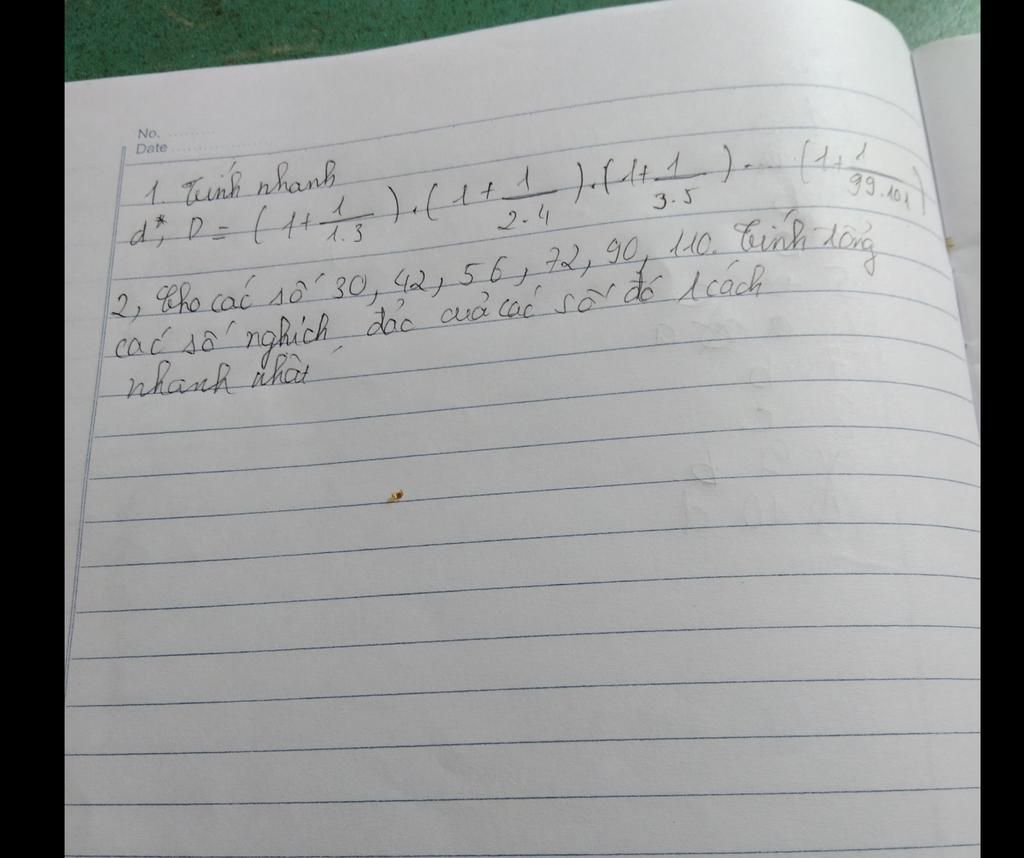 No. ..........
Date ....................
1. Tính nhanh
d*, D = (1+1/1.3).(1+1/2.4).(1+1/3.5)....(1+1/99.101)
2, Cho các số 30, 42, 56, 72, 90, 110. Tính tổng
các số nghịch đảo của các số đó 1 cách
nhanh nhất